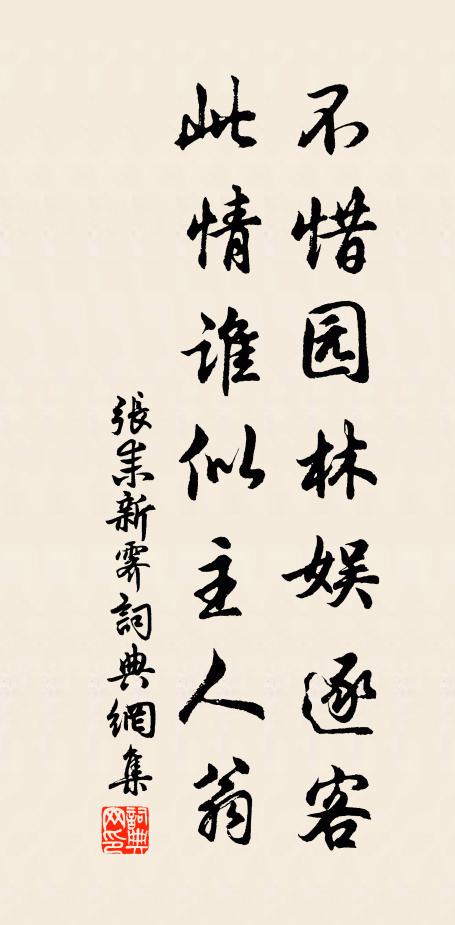 不惜园林娱逐客
此情谁似主人翁
張耒新霁詞典網集
詞典网印